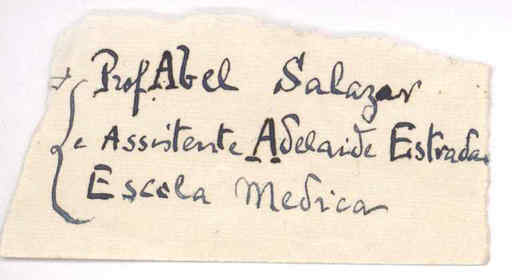 Prof Abel Salazar
e Assistente Adelaide Estrada
Escola Medica